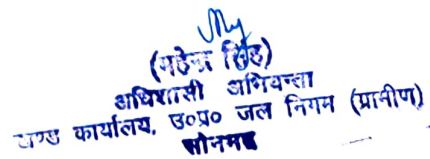 (महेन्द्र सिंह)
अधिशासी अभियन्ता
खण्ड कार्यालय, उ०प्र० जल निगम (ग्रामीण)
सोनभद्र